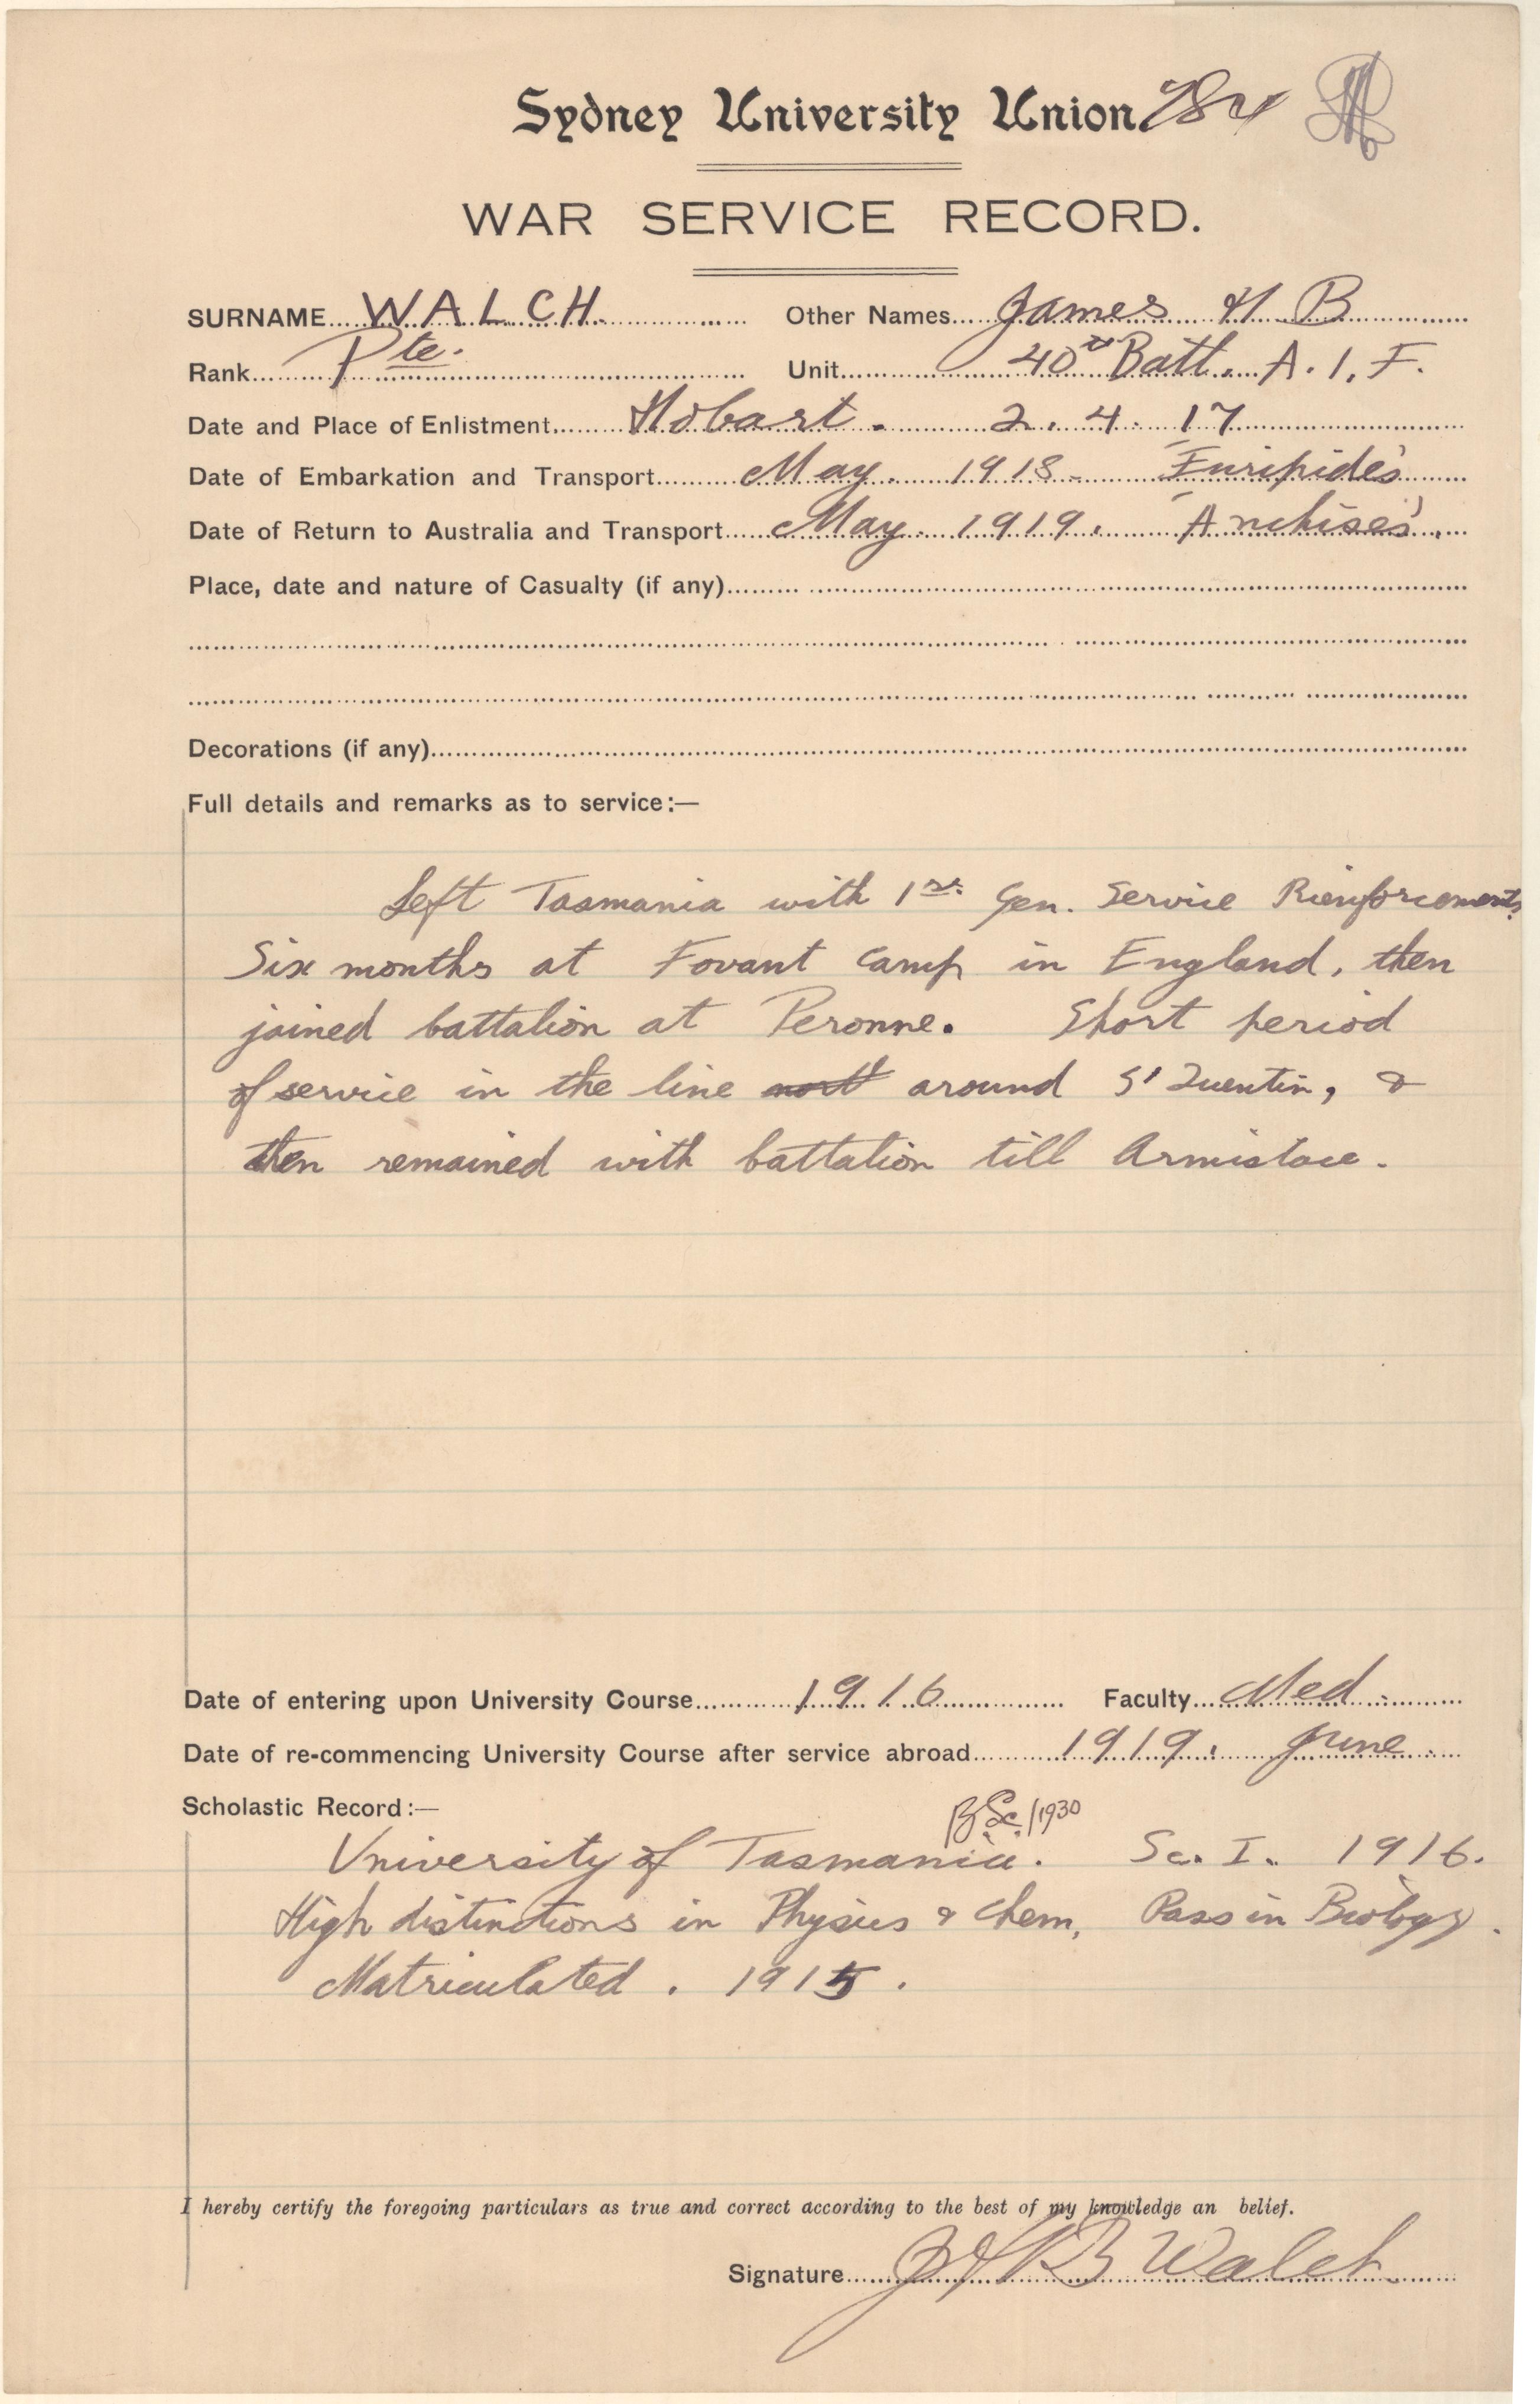 Sydney University Union. 784
WAR SERVICE RECORD.
SURNAME WALCH. Other Names James H B
Rank Pte. Unit 40th Batt. A. I. F.
Date and Place of Enlistment Hobart. 2. 4. 17
Date of Embarkation and Transport May. 1918. "Euripides"
Date of Return to Australia and Transport May. 1919. "Anchises".
Place, date and nature of Casualty (if any)
Decorations (if any)
Full details and remarks as to service:—
Left Tasmania with 1st Gen. Service Rienforcements.
Six months at Fovant Camp in England, then
joined battalion at Peronne. Short period
of service in the line around St Quentin, &
then remained with battalion till Armistace.
Date of entering upon University Course 1916 Faculty Med.
Date of re-commencing University Course after service abroad 1919. June.
Scholastic Record:—
B.Sc./1930
University of Tasmania. Sc. I. 1916.
High distinctions in Physics & Chem, Pass in Biology.
Matriculated. 1915.
I hereby certify the foregoing particulars as true and correct according to the best of my knowledge an belief.
Signature J H B Walch